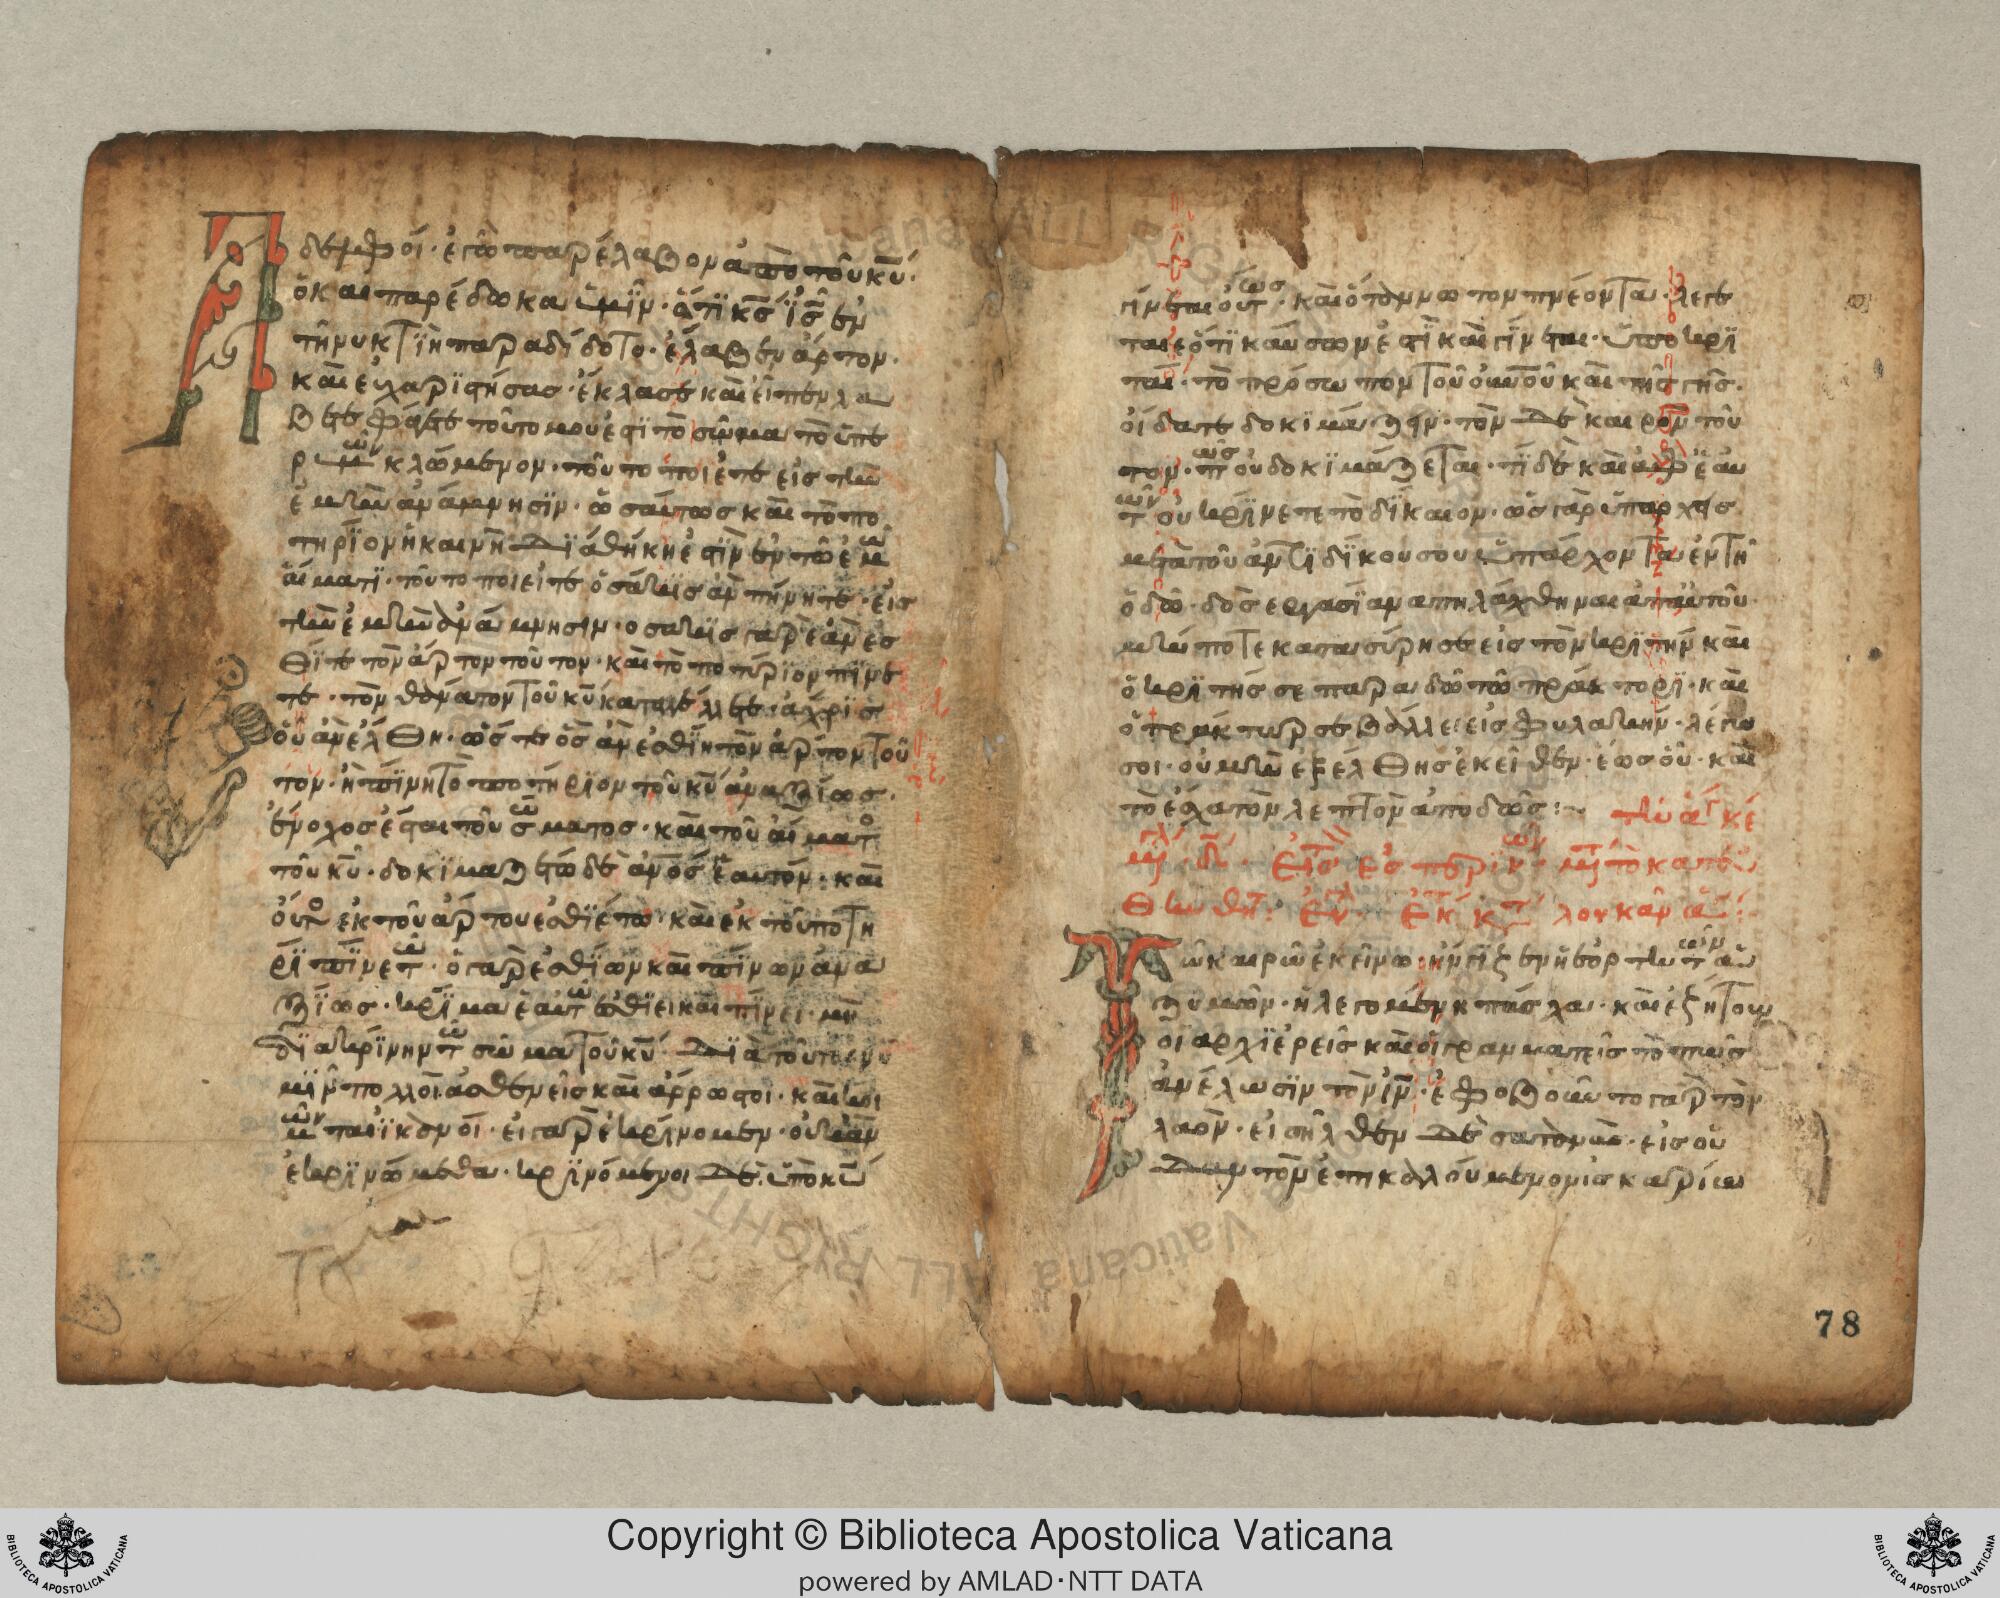 Ἀδελφοί· ἐγὼ παρέλαβον ἀπὸ τοῦ κυ·
ὃ καὶ παρέδωκα ὑμῖν· ὅτι κς ις ἐν
τῇ νυκτὶ ἣ παραδίδοτο· ἔλαβεν ἄρτον·
καὶ εὐχαριστήσας· ἔκλασε καὶ εἶπεν λα
βετε φάγετε τοῦτό μου ἐστὶ τὸ σῶμα τὸ ὑπὲ
ρ ὑμῶν κλώμενον· τοῦτο ποιεῖτε εἰς τὴν
ἐμὴν ἀνάμνησιν· ὡσαύτως καὶ τὸ πο
τήριον ἡ καινὴ διαθήκη ἐστὶν ἐν τῷ ἐμῷ
αἵματι· τοῦτο ποιεῖτε ὁσάκις ἂν πίνητε· εἰς
τὴν ἐμὴν ἀνάμνησιν· ὁσάκις γὰρ ἐὰν ἐσ
θίτε τὸν ἄρτον τοῦτον· καὶ τὸ ποτήριον πίνε
τε· τὸν θάνατον τοῦ κυ καταγγέλλετε· ἄχρις
οὗ ἂν ἔλθῃ· ὥστε ὃς ἂν ἐσθίῃ τὸν ἄρτον τοῦ
τον· ἢ πίνῃ τὸ ποτήριον τοῦ κυ ἀναξίως·
ἔνοχος ἔσται τοῦ σώματος· καὶ τοῦ αἵματο
τοῦ κυ· δοκιμαζέτω δὲ ἄνος ἑαυτόν· καὶ
οὕτο ἐκ τοῦ ἄρτου ἐσθιέτω· καὶ ἐκ τοῦ ποτη
ρί πινέτω· ὁ γὰρ ἐσθίων καὶ πίνων ἀνα
ξίως· κρίμα ἑαυτῷ ἐσθίει καὶ πίνει· μὴ
διακρίνην τῶ σῶμα τοῦ κυ· διὰ τοῦτο ἐν ὑ
μῖν πολλοὶ ἀσθενεῖς καὶ ἄρρωστοι· καὶ κοι
μῶνται ἱκανοί· εἰ γὰρ ἐκρίνομεν· οὐκ ἂν
ἐκρινόμεθα· κρινόμενοι δὲ ὑπὸ κυ
γίνεται οὕτως· καὶ ὅτον νωτον πνέοντα· λέγε
ται ὅτι καύσων ἐστὶ καὶ γίνεται· ὑποκρι
ταὶ· τὸ πρόσωπον τοῦ οὐνοῦ καὶ τῆς γῆς·
οἴδατε δοκιμάζην· τὸν δὲ καιρὸν τοῦ
τον· πῶς οὐ δοκιμάζεται· τί δὲ καὶ ἀφ ἑαυ
τῶν οὐ κρίνετε τὸ δίκαιον· ὡς γὰρ ὑπάρχης
μετὰ τοῦ ἀντιδίκου σου ὑπάρχοντα ἐν τῇ
ὁδῷ· δὸς ἐργασίαν ἀπηλάχθηναι ἀπ αὐτοῦ·
μήποτε κατασύρησε εἰς τὸν κριτήν καὶ
ὁ κριτής σε παραδῶ τῷ πράκτορι· καὶ
ὁ πράκτωρ σε βάλλει εἰς φυλακήν· λέγω
σοι· οὐ μὴ ἐξέλθης ἐκεῖθεν· ἕως οὗ· καὶ
τὸ ἔσχατον λεπτὸν ἀποδῶς:
ἐκ κτ λουκᾶν
Τῷ καιρῷ ἐκείνω· ἤγγιξεν ἡ ἑορτὴ τῶν ἀ
ζύμων· ἡ λεγομένη πάσχα· καὶ ἐξήτουν
οἱ ἀρχιερεῖς καὶ οἱ γραμματεῖς τὸ πῶς
ἀνέλωσιν τὸν ιν· ἐφοβοῦντο γὰρ τὸν
λαόν· εἰσῆλθεν δὲ σατανᾶς· εἰς ἰού
δαν τὸν ἐπικαλούμενον ἰσκαριω
78
Copyright © Biblioteca Apostolica Vaticana
powered by AMLAD·NTT DATA
BIBLIOTECA APOSTOLICA VATICANA
BIBLIOTECA APOSTOLICA VATICANA